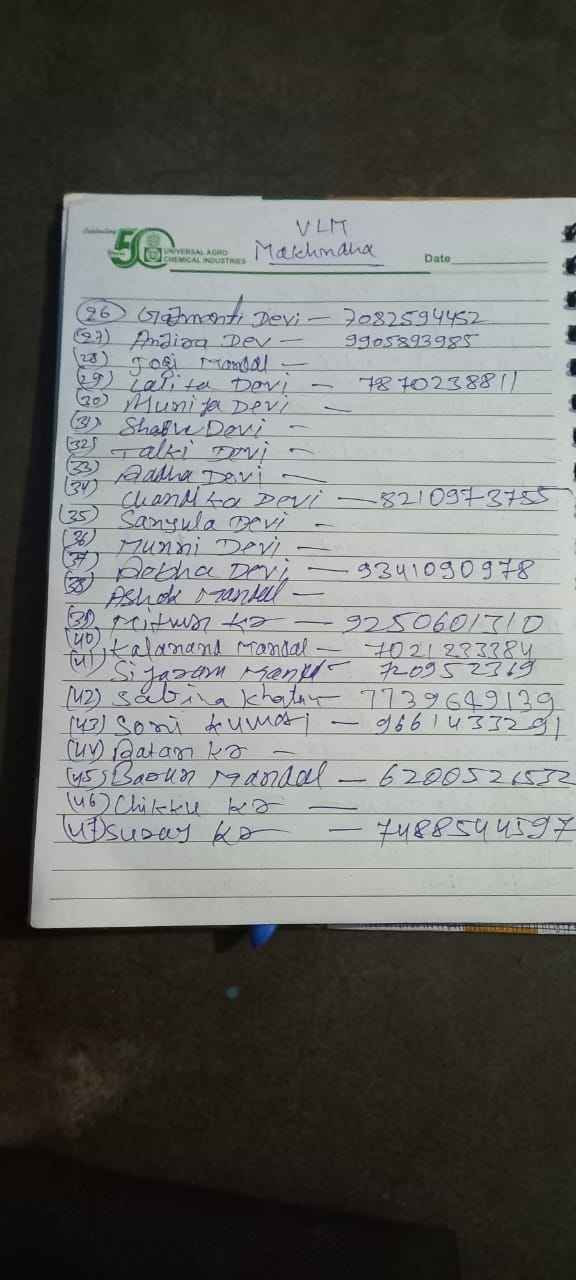 VLM
Celebrating 50 Years UNIVERSAL AGRO CHEMICAL INDUSTRIES Makhndha Date
(26) Devi - 7082594452
(27) Anjira Dev - 9905893985
(28) Jogi Mandal -
(29) Lalita Devi - 7870238811
(30) Munita Devi -
(31) Devi -
(32) Talki Devi -
(33) Radha Devi -
(34) Chandika Devi - 8210973755
(35) Sanjula Devi -
(36) Munni Devi -
(37) Rekha Devi - 9341090978
(38) Ashok Mandal -
(39) Mithun kr - 9250601310
(40) Kalanand Mandal - 7021233384
(41) Sitaram - 720952369
(42) Sabina Khatun - 7739649139
(43) Soni Kumari - 9661433291
(44) Ratan kr -
(45) Mandal - 6200526532
(46) Chikku kr -
(47) Suraj kr - 7488544597